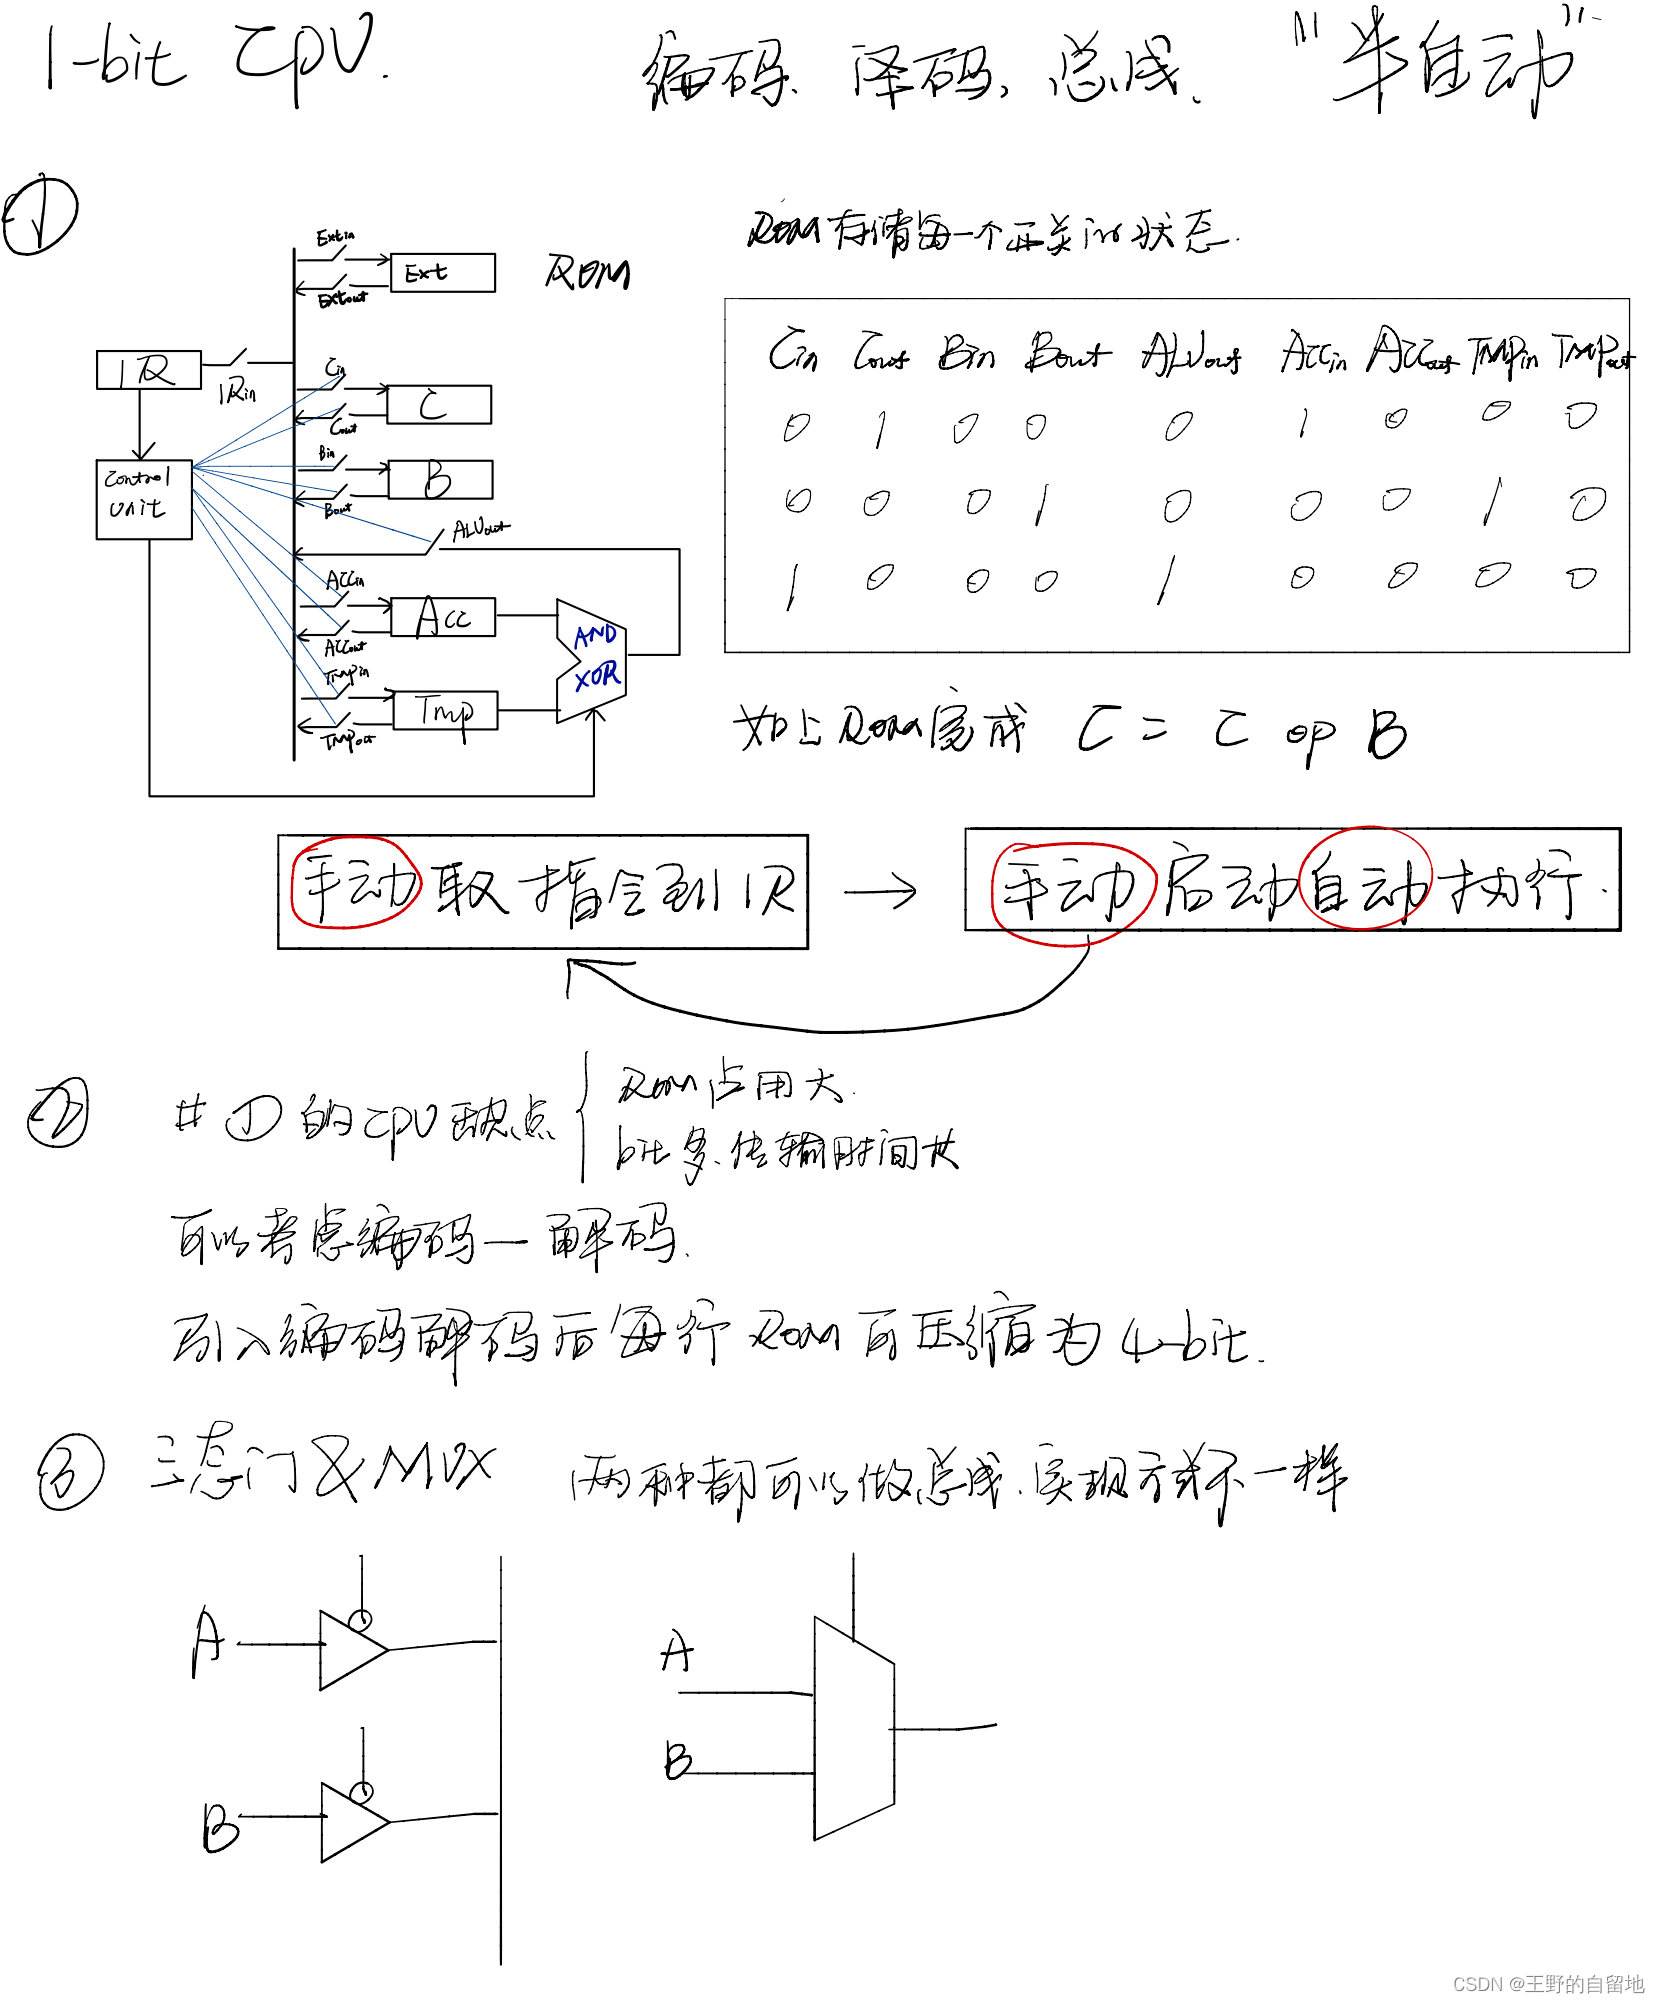 1-bit CPU.
编码、译码、总成、 "半自动"
①
ROM存储每一个开关的状态.
Extin
Ext
Extout
ROM
IR
IRin
Cin
C
Cout
Control
Unit
Bin
B
Bout
ALUout
ACCin
Acc
ACCout
AND
XOR
TMPin
Tmp
TMPout
Cin Cout Bin Bout ALUout ACCin ACCout TMPin TMPout
0 1 0 0 0 1 0 0 0
0 0 0 1 0 0 0 1 0
1 0 0 0 1 0 0 0 0
如上ROM完成 C = C op B
手动取指令到IR → 手动启动自动执行.
② # ①的CPU缺点
ROM占用大.
bit多、传输时间长
可以考虑编码—解码.
引入编码解码后每行ROM可压缩为4-bit.
③ 三态门&MUX 两种都可以做总成.实现方式不一样
A
B
A
B
CSDN @王野的自留地